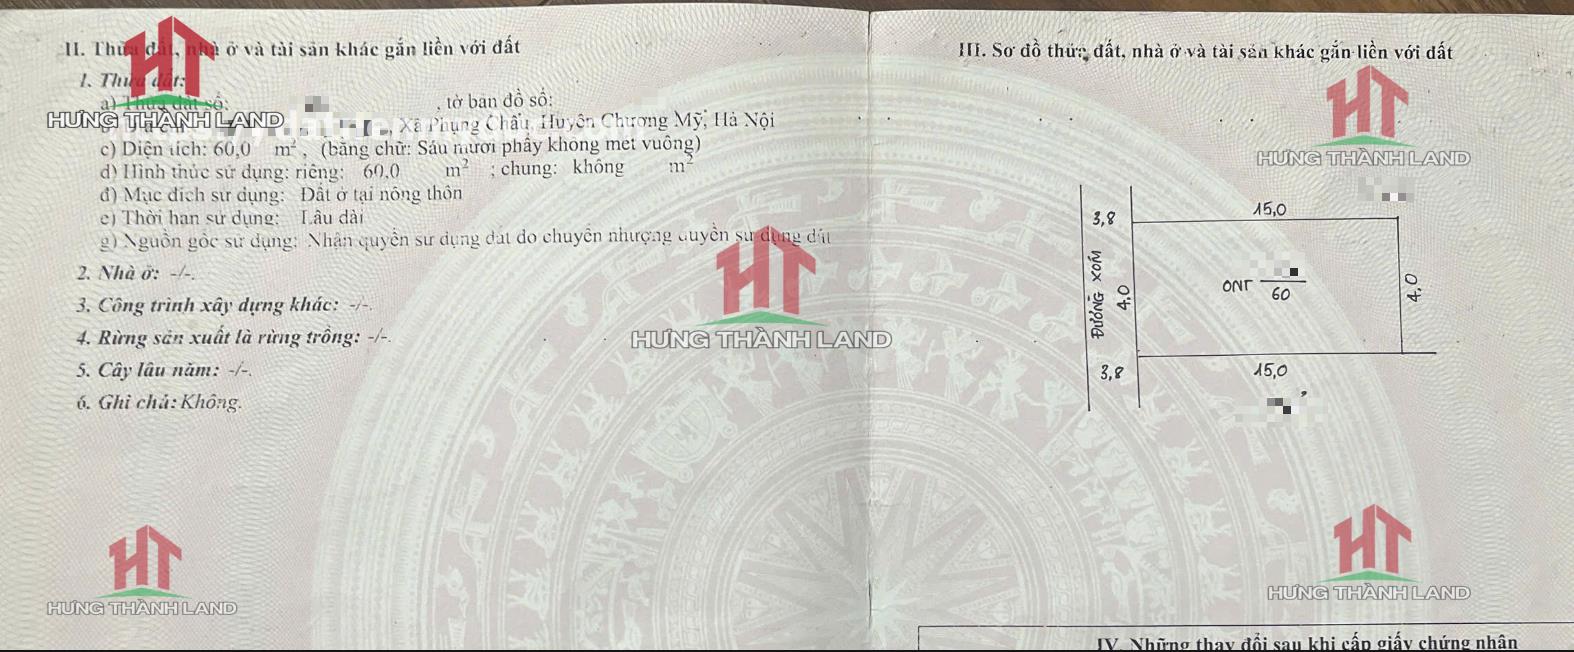 II. Thửa đất, nhà ở và tài sản khác gắn liền với đất
1. Thửa đất:
a) Thửa đất số: , tờ bản đồ số:
, Xã Phụng Châu, Huyện Chương Mỹ, Hà Nội
c) Diện tích: 60,0 m², (bằng chữ: Sáu mươi phẩy không mét vuông)
d) Hình thức sử dụng: riêng: 60.0 m² ; chung: không m²
đ) Mục đích sử dụng: Đất ở tại nông thôn
e) Thời hạn sử dụng: Lâu dài
g) Nguồn gốc sử dụng: Nhận quyền sử dụng đất do chuyển nhượng quyền sử dụng đất
2. Nhà ở: -/-.
3. Công trình xây dựng khác: -/-.
4. Rừng sản xuất là rừng trồng: -/-.
5. Cây lâu năm: -/-.
6. Ghi chú: Không.
III. Sơ đồ thửa đất, nhà ở và tài sản khác gắn liền với đất
15,0
3,8
ĐƯỜNG XÓM
4,0
ONT
60
4,0
3,8
15,0
IV. Những thay đổi sau khi cấp giấy chứng nhận
HT
HƯNG THÀNH LAND
HT
HƯNG THÀNH LAND
HT
HƯNG THÀNH LAND
HT
HƯNG THÀNH LAND
HT
HƯNG THÀNH LAND